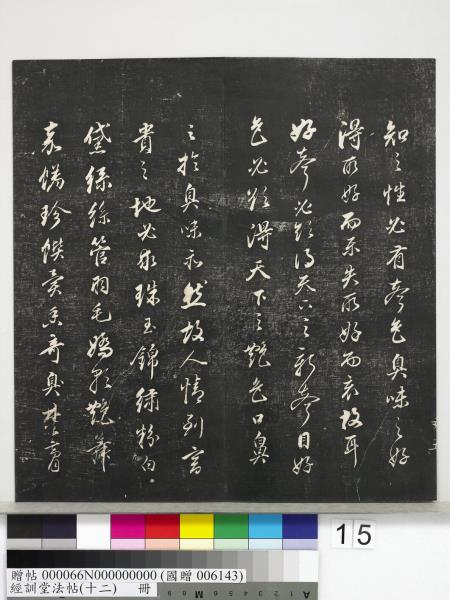 知之性必有聲色臭味之好
得所好而樂失所好而哀故耳
好聲必欲得天下之新聲目好
色必欲得天下之艷色口鼻
之於臭味亦然故人情到富
貴之地必求珠玉錦繡粉白
黛綠絲管羽毛嬌歌艷舞
嘉饍珍饌異香奇臭
15
贈帖 000066N000000000 (國贈 006143)
經訓堂法帖(十二) 冊